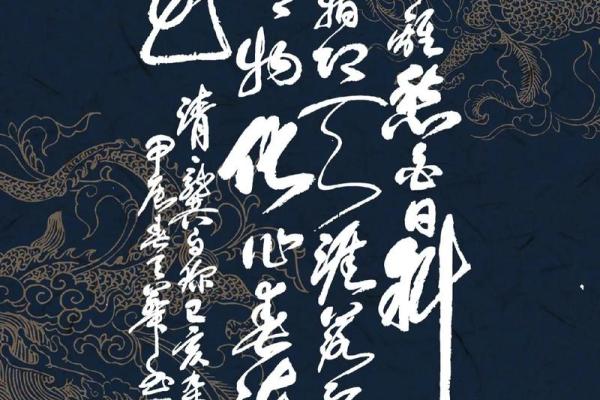 離愁白日斜
指即天涯落
物化作春泥
清龔自珍己亥
甲辰春